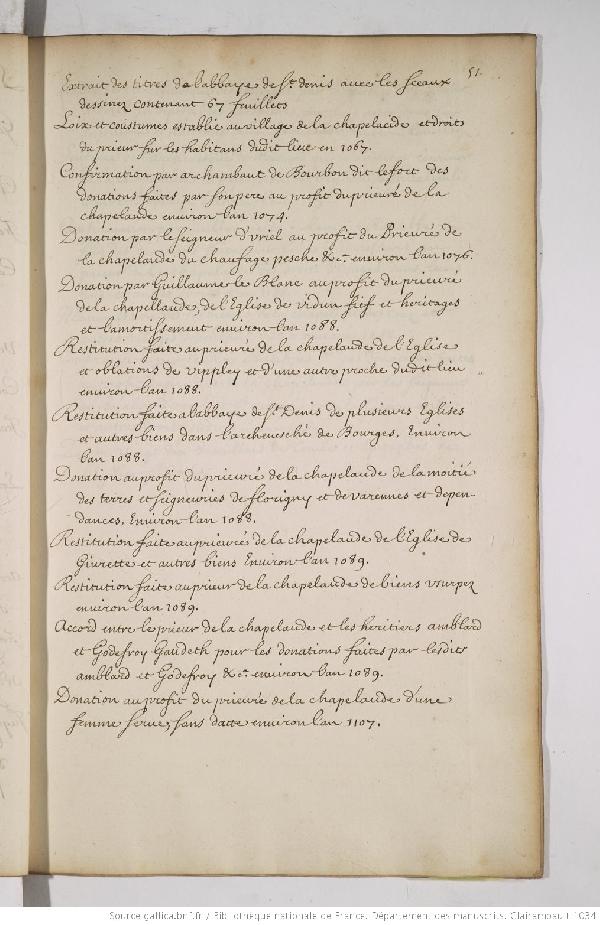 51.
Extrait des titres de labbaye de St. denis auec les sceaux
dessinez contenant 67 feuillets
Loix et coustumes establie au village de la chapelaude et droits
du prieur sur les habitans dudit lieu en 1067.
Confirmation par archambaut de Bourbon dit lefort des
donations faites par son pere au profit du prieuré de la
chapelaude enuiron lan 1074.
Donation par le seigneur d'vriel au profit du Prieuré de
la chapelaude du chaufage pesche &c. enuiron lan 1076.
Donation par Guillaume le Blanc au profit du prieuré
de la chapellaude, de l'Eglise de vidun fief et heritages
et lamortissement enuiron lan 1088.
Restitution faite au prieuré de la chapelaude de l'Eglise
et oblations de vippley et d'une autre proche dudit lieu
enuiron lan 1088.
Restitution faite a labbaye de St. Denis de plusieurs Eglises
et autres biens dans larcheuesché de Bourges. Enuiron
lan 1088.
Donation au profit du prieuré de la chapelaude de la moitié
des terres et seigneuries de florigny et de varennes et depen-
dances. Enuiron lan 1088.
Restitution faite au prieuré de la chapelaude de l'Eglise de
Giurette et autres biens Enuiron lan 1089.
Restitution faite au prieur de la chapelaude de biens vsurpez
enuiron lan 1089.
Accord entre le prieur de la chapelaude et les heritiers amblard
et Godefroy Gaudeth pour les donations faites par lesdits
amblard et Godefroy &c. enuiron lan 1089.
Donation au profit du prieuré de la chapelaude d'une
femme serue, sans datte enuiron lan 1107.
Source gallica.bnf.fr / Bibliothèque nationale de France. Département des manuscrits. Clairambault 1034